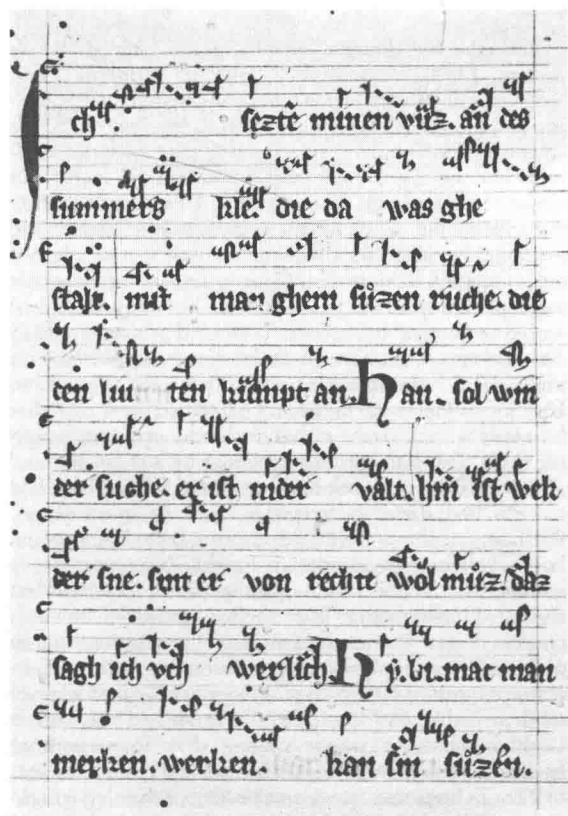 Ich. seztē minen vůz. an des
summers kle. die da was ghe
stalt. mit man ghem sůzen ruche. die
den luu ten kůmpt an. Han. sol wīn
der suche. er ist nider valt. hin ist wek
der sne. sint er von rechte wol můz. daz
sagh ich vch werlich. Hy. bi. mac man
merken. werken. kan sin sůzen.